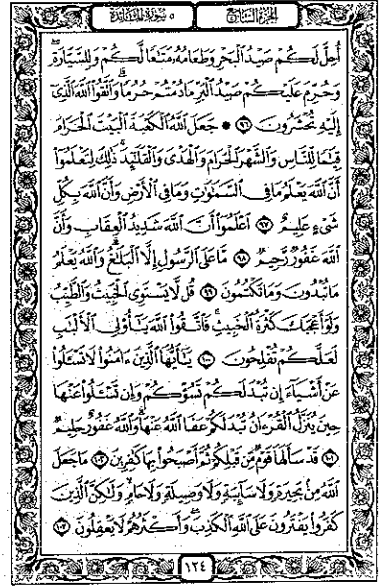 الجزء السابع
٥ سورة المائدة
أُحِلَّ لَكُمْ صَيْدُ ٱلْبَحْرِ وَطَعَامُهُۥ مَتَٰعًا لَّكُمْ وَلِلسَّيَّارَةِ ۖ
وَحُرِّمَ عَلَيْكُمْ صَيْدُ ٱلْبَرِّ مَا دُمْتُمْ حُرُمًا ۗ وَٱتَّقُوا۟ ٱللَّهَ ٱلَّذِىٓ
إِلَيْهِ تُحْشَرُونَ ٩٦ ۞ جَعَلَ ٱللَّهُ ٱلْكَعْبَةَ ٱلْبَيْتَ ٱلْحَرَامَ
قِيَٰمًا لِّلنَّاسِ وَٱلشَّهْرَ ٱلْحَرَامَ وَٱلْهَدْىَ وَٱلْقَلَٰٓئِدَ ۚ ذَٰلِكَ لِتَعْلَمُوٓا۟
أَنَّ ٱللَّهَ يَعْلَمُ مَا فِى ٱلسَّمَٰوَٰتِ وَمَا فِى ٱلْأَرْضِ وَأَنَّ ٱللَّهَ بِكُلِّ
شَىْءٍ عَلِيمٌ ٩٧ ٱعْلَمُوٓا۟ أَنَّ ٱللَّهَ شَدِيدُ ٱلْعِقَابِ وَأَنَّ
ٱللَّهَ غَفُورٌ رَّحِيمٌ ٩٨ مَّا عَلَى ٱلرَّسُولِ إِلَّا ٱلْبَلَٰغُ ۗ وَٱللَّهُ يَعْلَمُ
مَا تُبْدُونَ وَمَا تَكْتُمُونَ ٩٩ قُل لَّا يَسْتَوِى ٱلْخَبِيثُ وَٱلطَّيِّبُ
وَلَوْ أَعْجَبَكَ كَثْرَةُ ٱلْخَبِيثِ ۚ فَٱتَّقُوا۟ ٱللَّهَ يَٰٓأُو۟لِى ٱلْأَلْبَٰبِ
لَعَلَّكُمْ تُفْلِحُونَ ١٠٠ يَٰٓأَيُّهَا ٱلَّذِينَ ءَامَنُوا۟ لَا تَسْـَٔلُوا۟
عَنْ أَشْيَآءَ إِن تُبْدَ لَكُمْ تَسُؤْكُمْ وَإِن تَسْـَٔلُوا۟ عَنْهَا
حِينَ يُنَزَّلُ ٱلْقُرْءَانُ تُبْدَ لَكُمْ عَفَا ٱللَّهُ عَنْهَا ۗ وَٱللَّهُ غَفُورٌ حَلِيمٌ
١٠١ قَدْ سَأَلَهَا قَوْمٌ مِّن قَبْلِكُمْ ثُمَّ أَصْبَحُوا۟ بِهَا كَٰفِرِينَ ١٠٢ مَا جَعَلَ
ٱللَّهُ مِنۢ بَحِيرَةٍ وَلَا سَآئِبَةٍ وَلَا وَصِيلَةٍ وَلَا حَامٍ ۙ وَلَٰكِنَّ ٱلَّذِينَ
كَفَرُوا۟ يَفْتَرُونَ عَلَى ٱللَّهِ ٱلْكَذِبَ ۖ وَأَكْثَرُهُمْ لَا يَعْقِلُونَ ١٠٣
١٢٤